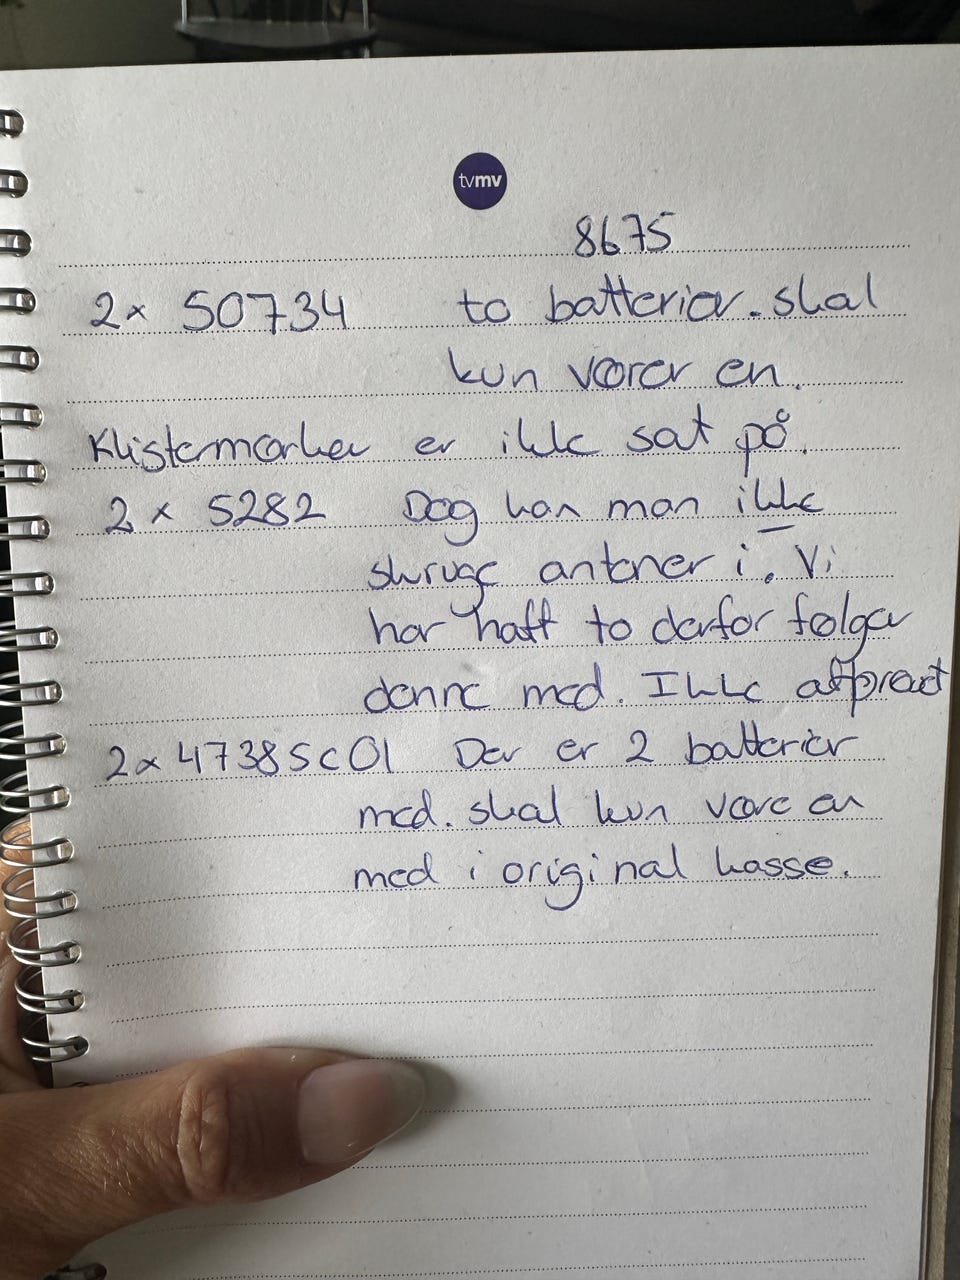 tvmv
8675
2x 50734 to batterier. skal
kunværer en.
Klistermærker er ikke sat på.
2 x 5282 Dog kan man ikke
skruge antener i. Vi
har haft to derfor følger
denne med. Ikke afprøvet
2x 4738SC01 Der er 2 batterier
med. skal kun være en
med i original kasse.